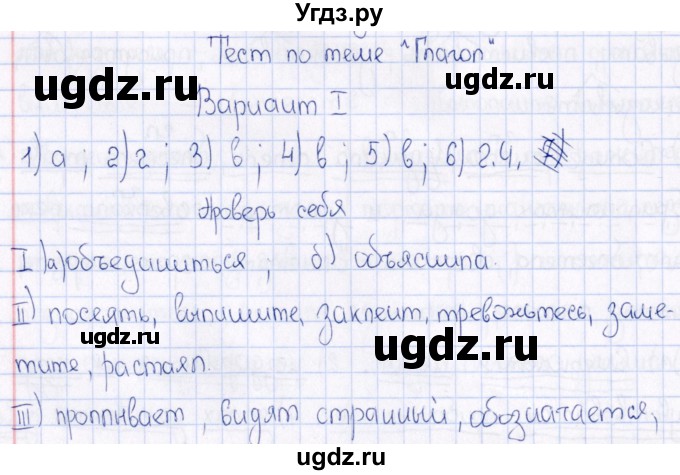 Угдз.ру
Тест по теме "Глагол"
ugdz.ru ugdz.ru
Вариант I
1) а ; 2) г ; 3) в ; 4) в ; 5) в ; 6) 2.4.
Проверь себя
I) а) объединиться ; б) объяснила.
II) посеять, выпишите, заклеит, тревожьтесь, заме-
ugdz.ru ugdz.ru
тите, растаял.
III) проплывает, видят странный, обозначается,
ugdz.ru